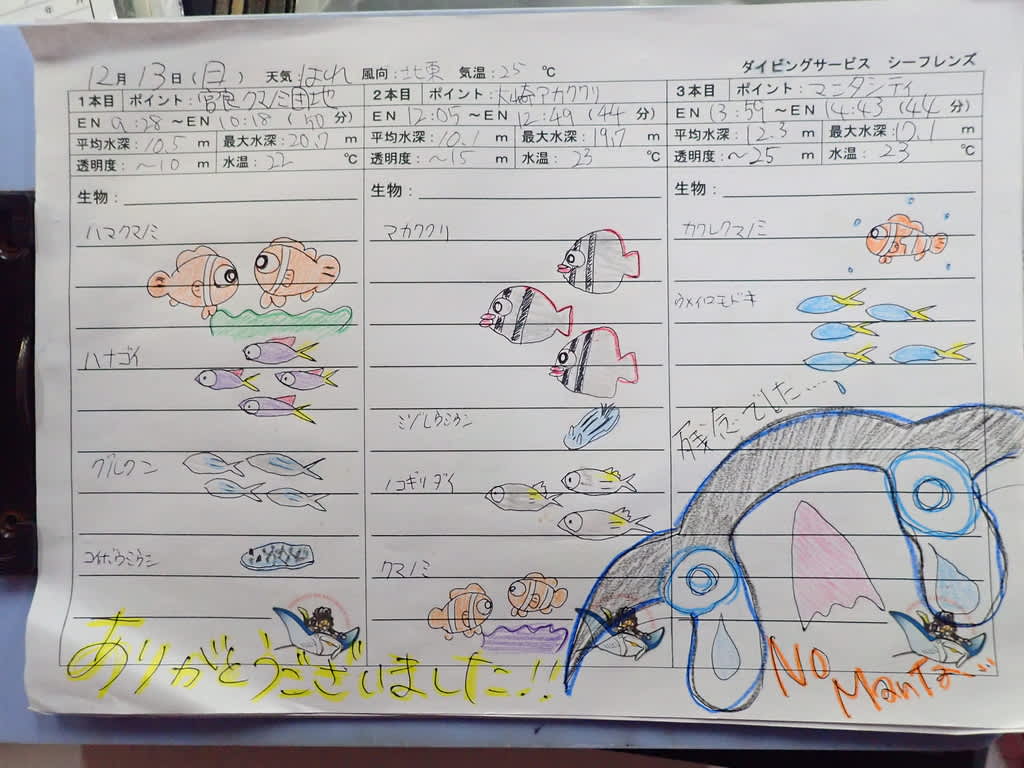 ダイビングサービス シーフレンズ
12月 13日 (日) 天気:はれ 風向:北東 気温:25 ℃
1本目 ポイント:宮良クマノミ団地
EN 9:28 ～EN 10:18 (50 分)
平均水深:10.5 m 最大水深:20.7 m
透明度:～10 m 水温:22 ℃
生物:
ハマクマノミ
ハナゴイ
グルクン
コイボウミウシ
2本目 ポイント:大崎アカククリ
EN 12:05 ～EN 12:49 (44 分)
平均水深:10.1 m 最大水深:19.7 m
透明度:～15 m 水温:23 ℃
生物:
アカククリ
ミゾレウミウシ
ノコギリダイ
クマノミ
3本目 ポイント:マンタシティ
EN 13:59 ～EN 14:43 (44 分)
平均水深:12.3 m 最大水深:17.1 m
透明度:～25 m 水温:23 ℃
生物:
カクレクマノミ
ウメイロモドキ
残念でした…
ありがとうございました!!
No
Manta…